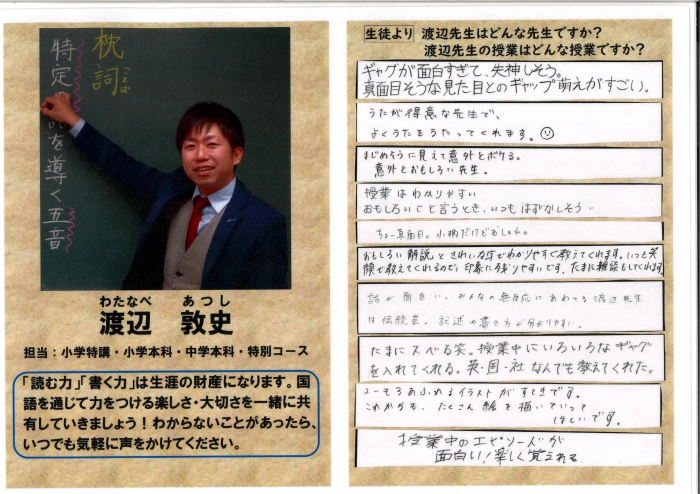 枕詞
ことば
特定の語を導く五音
わたなべ あつし
渡辺 敦史
担当：小学特講・小学本科・中学本科・特別コース
「読む力」「書く力」は生涯の財産になります。国
語を通じて力をつける楽しさ・大切さを一緒に共
有していきましょう！わからないことがあったら、
いつでも気軽に声をかけてください。
生徒より 渡辺先生はどんな先生ですか？
渡辺先生の授業はどんな授業ですか？
ギャグが面白すぎて、失神しそう。
真面目そうな見た目とのギャップ萌えがすごい。
うたが得意な先生で、
よくうたをうたってくれます。
まじめそうに見えて意外とボケる。
意外とおもしろい先生。
授業はわかりやすい
おもしろいこと言うとき、いつもはずかしそう
真面目。小柄だけど
おもしろい解説ときれいな字でわかりやすく教えてくれます。いつも笑
顔で教えてくれるので、印象に残りやすいです。たまに雑談もしてくれます。
話が面白い。みんなの無反応にあわてる渡辺先生
は伝統芸。記述の書き方が分かりやすい。
たまにスベる笑。授業中にいろいろなギャグ
を入れてくれる。英・国・社なんでも教えてくれた。
ユーモアあふれるイラストがすてきです。
これからも、たくさん絵を描いていって
ほしいです。
授業中のエピソードが
面白い！楽しく覚えれる